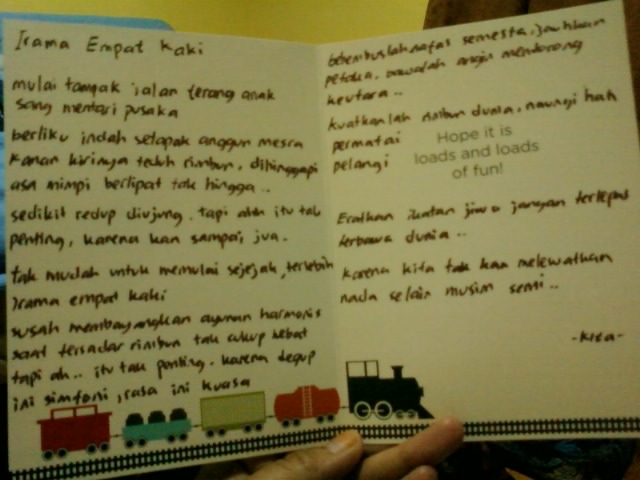 Irama Empat Kaki
mulai tampak jalan terang anak
sang mentari pusaka
berliku indah setapak anggun mesra
kanan kirinya teduh rimbun, dihinggapi
asa mimpi berlipat tak hingga..
sedikit redup diujung, tapi ahh itu tak
penting, karena kan sampai jua.
tak mudah untuk memulai sejejak, terlebih
irama empat kaki
susah membayangkan ayunan harmonis
saat tersadar rimbun tak cukup hebat
tapi ah.. itu tak penting. karena degup
ini simfoni, rasa ini kuasa
nafas semesta, jauhkan
petaka. bawalah angin mendorong
keutara..
kuatkanlah rimbun dunia, naungi hak
permatai
pelangi
Hope it is
loads and loads
of fun!
Eratkan ikatan jiwa jangan terlepas
terbawa dunia..
karena kita tak kan melewatkan
nada selain musim semi..
-Kita-